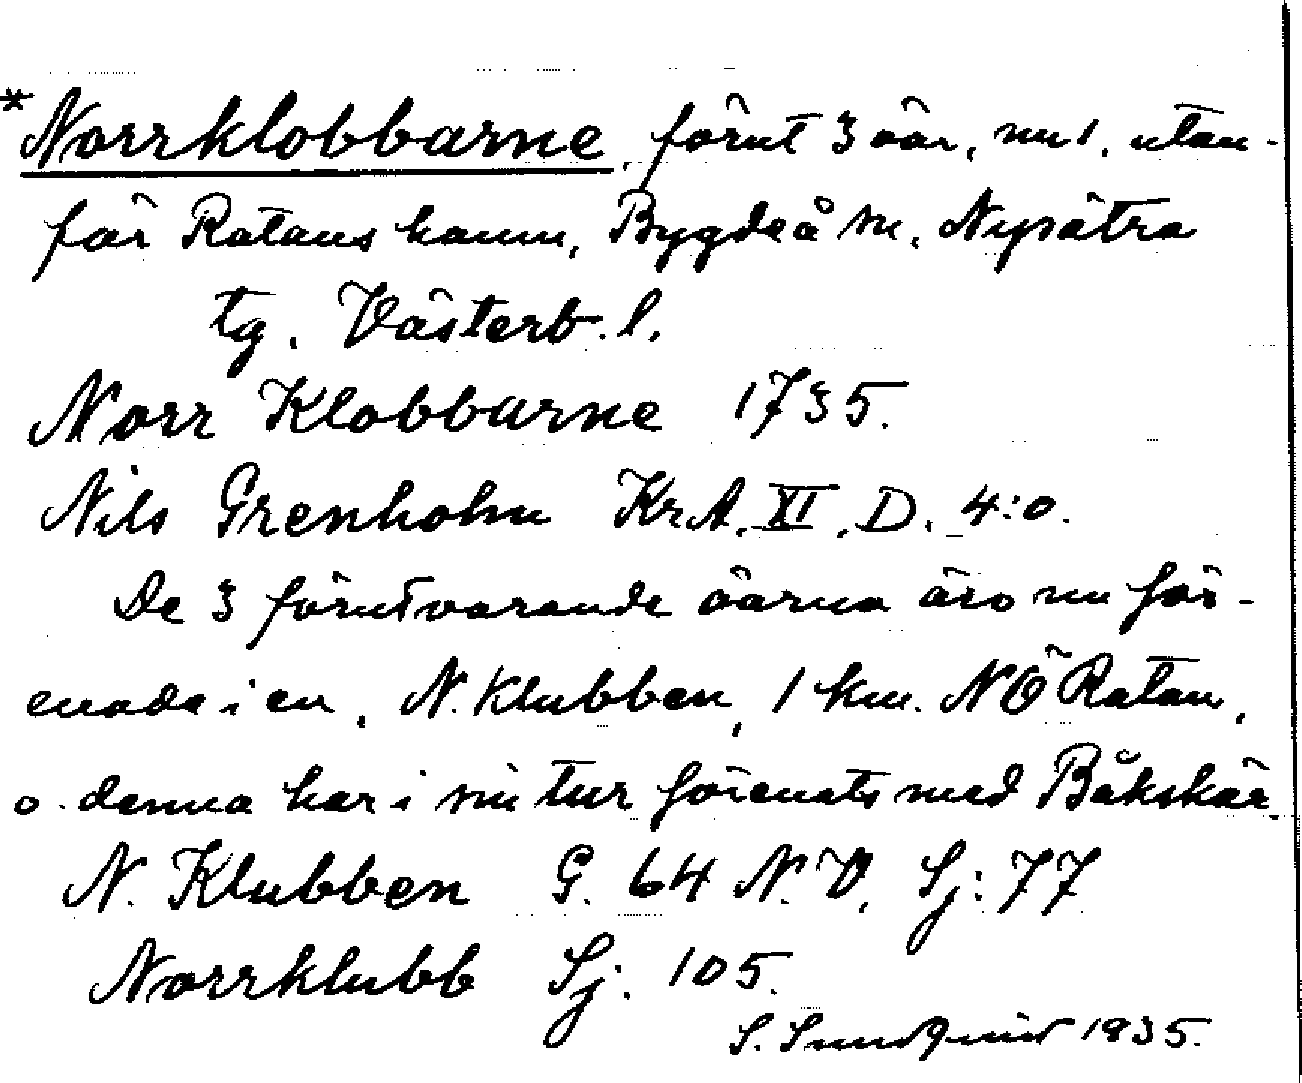 *Norrklobbarne, förut 3 öar, nu 1, utan-
för Ratans hamn, Bygdeå sn, Nysätra
tg. Västerb. l.
Norr Klobbarne 1735.
Nils Grenholm Kr.A. XI. D. 4:o.
De 3 förutvarande öarna äro nu för-
enade i en, N. Klubben, 1 km. NÖ Ratan,
o. denna har i sin tur förenats med Båkskär.
N. Klubben G. 64 N.V, Sj: 77
Norrklubb Sj: 105.
S. Sundqvist 1935.